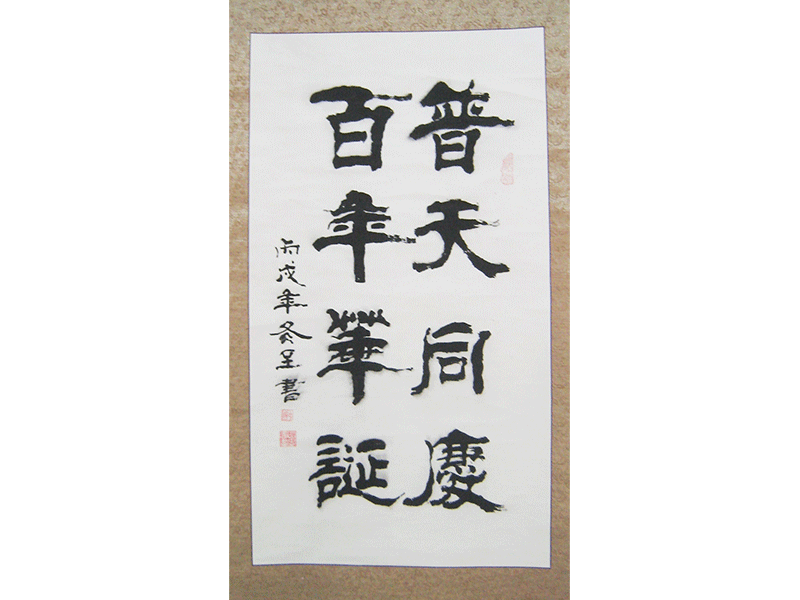 普天同慶
百年華誕
丙戌年冬呈書